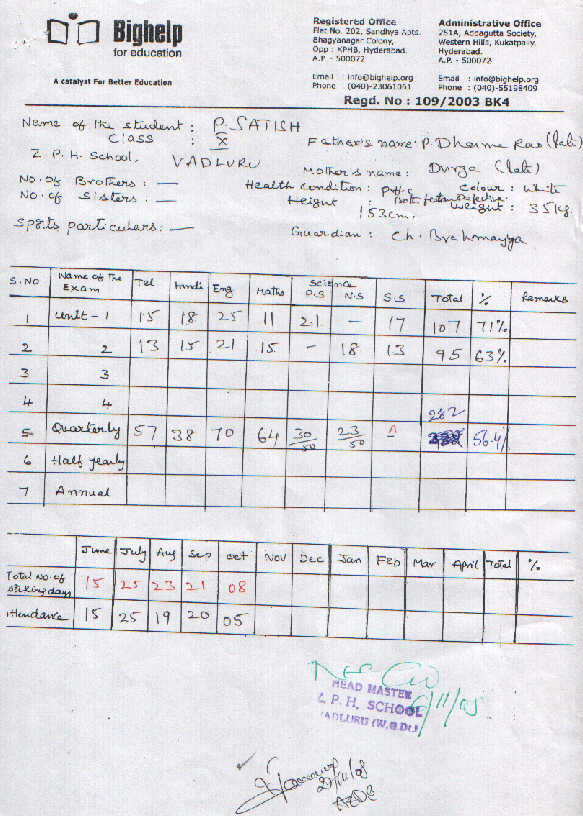 Bighelp
for education
A catalyst For Better Education
Registered Office
Flat No. 202, Sandhya Apts.
Bhagyanagar Colony,
Opp : KPHB, Hyderabad.
A.P - 500072
Email : info@bighelp.org
Phone : (040)-23061051
Administrative Office
251A, Addagutta Society,
Western Hills, Kukatpally,
Hyderabad.
A.P. - 500072
Email : info@bighelp.org
Phone : (040)-55198409
Regd. No : 109/2003 BK4
Name of the student : P. SATISH
Class : X
Father's name: P. Dharma Rao (late)
Z P. H. School, VADLURU
Mother's name : Durga (late)
No. of Brothers : —
Health condition :
Colour : White
No. of Sisters . —
Height : 153cm.
Weight : 35kg.
Sports particulars : —
Guardian : Ch. Brahmayya
S.NO Name of the Exam Tel Hindi Eng Maths Science P.S N.S S.S Total % Remarks
1 Unit - 1 15 18 25 11 21 — 17 107 71%
2 2 13 15 21 15 - 18 13 95 63%
3 3
4 4
5 Quarterly 57 38 70 64 30/50 23/50 A 282 56.4%
6 Half yearly
7 Annual
June July Aug Sep Oct Nov Dec Jan Feb Mar April Total %
Total No. of working days 15 25 23 21 08
Attendance 15 25 19 20 05
HEAD MASTER
Z. P. H. SCHOOL
VADLURU (W.G.Dt.)